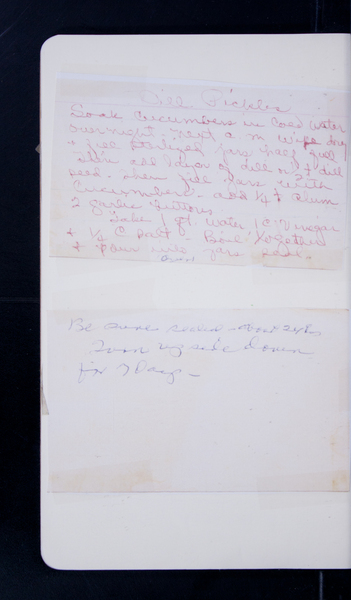 Dill Pickles
Soak Cucumbers in Cold Water
over night. next a m wipe dry
+ fill sterilized jars half full
then add layer of dill or t dill
seed - then fill jars with
Cucumbers - add 1/4 t alum
2 garlic buttons
Take 1 qt. water 1 C Vinegar
+ 1/4 C salt - Boil together
+ pour into jars seal.
Be sure sealed - about 24 hrs
Turn up side down
for 7 Days -